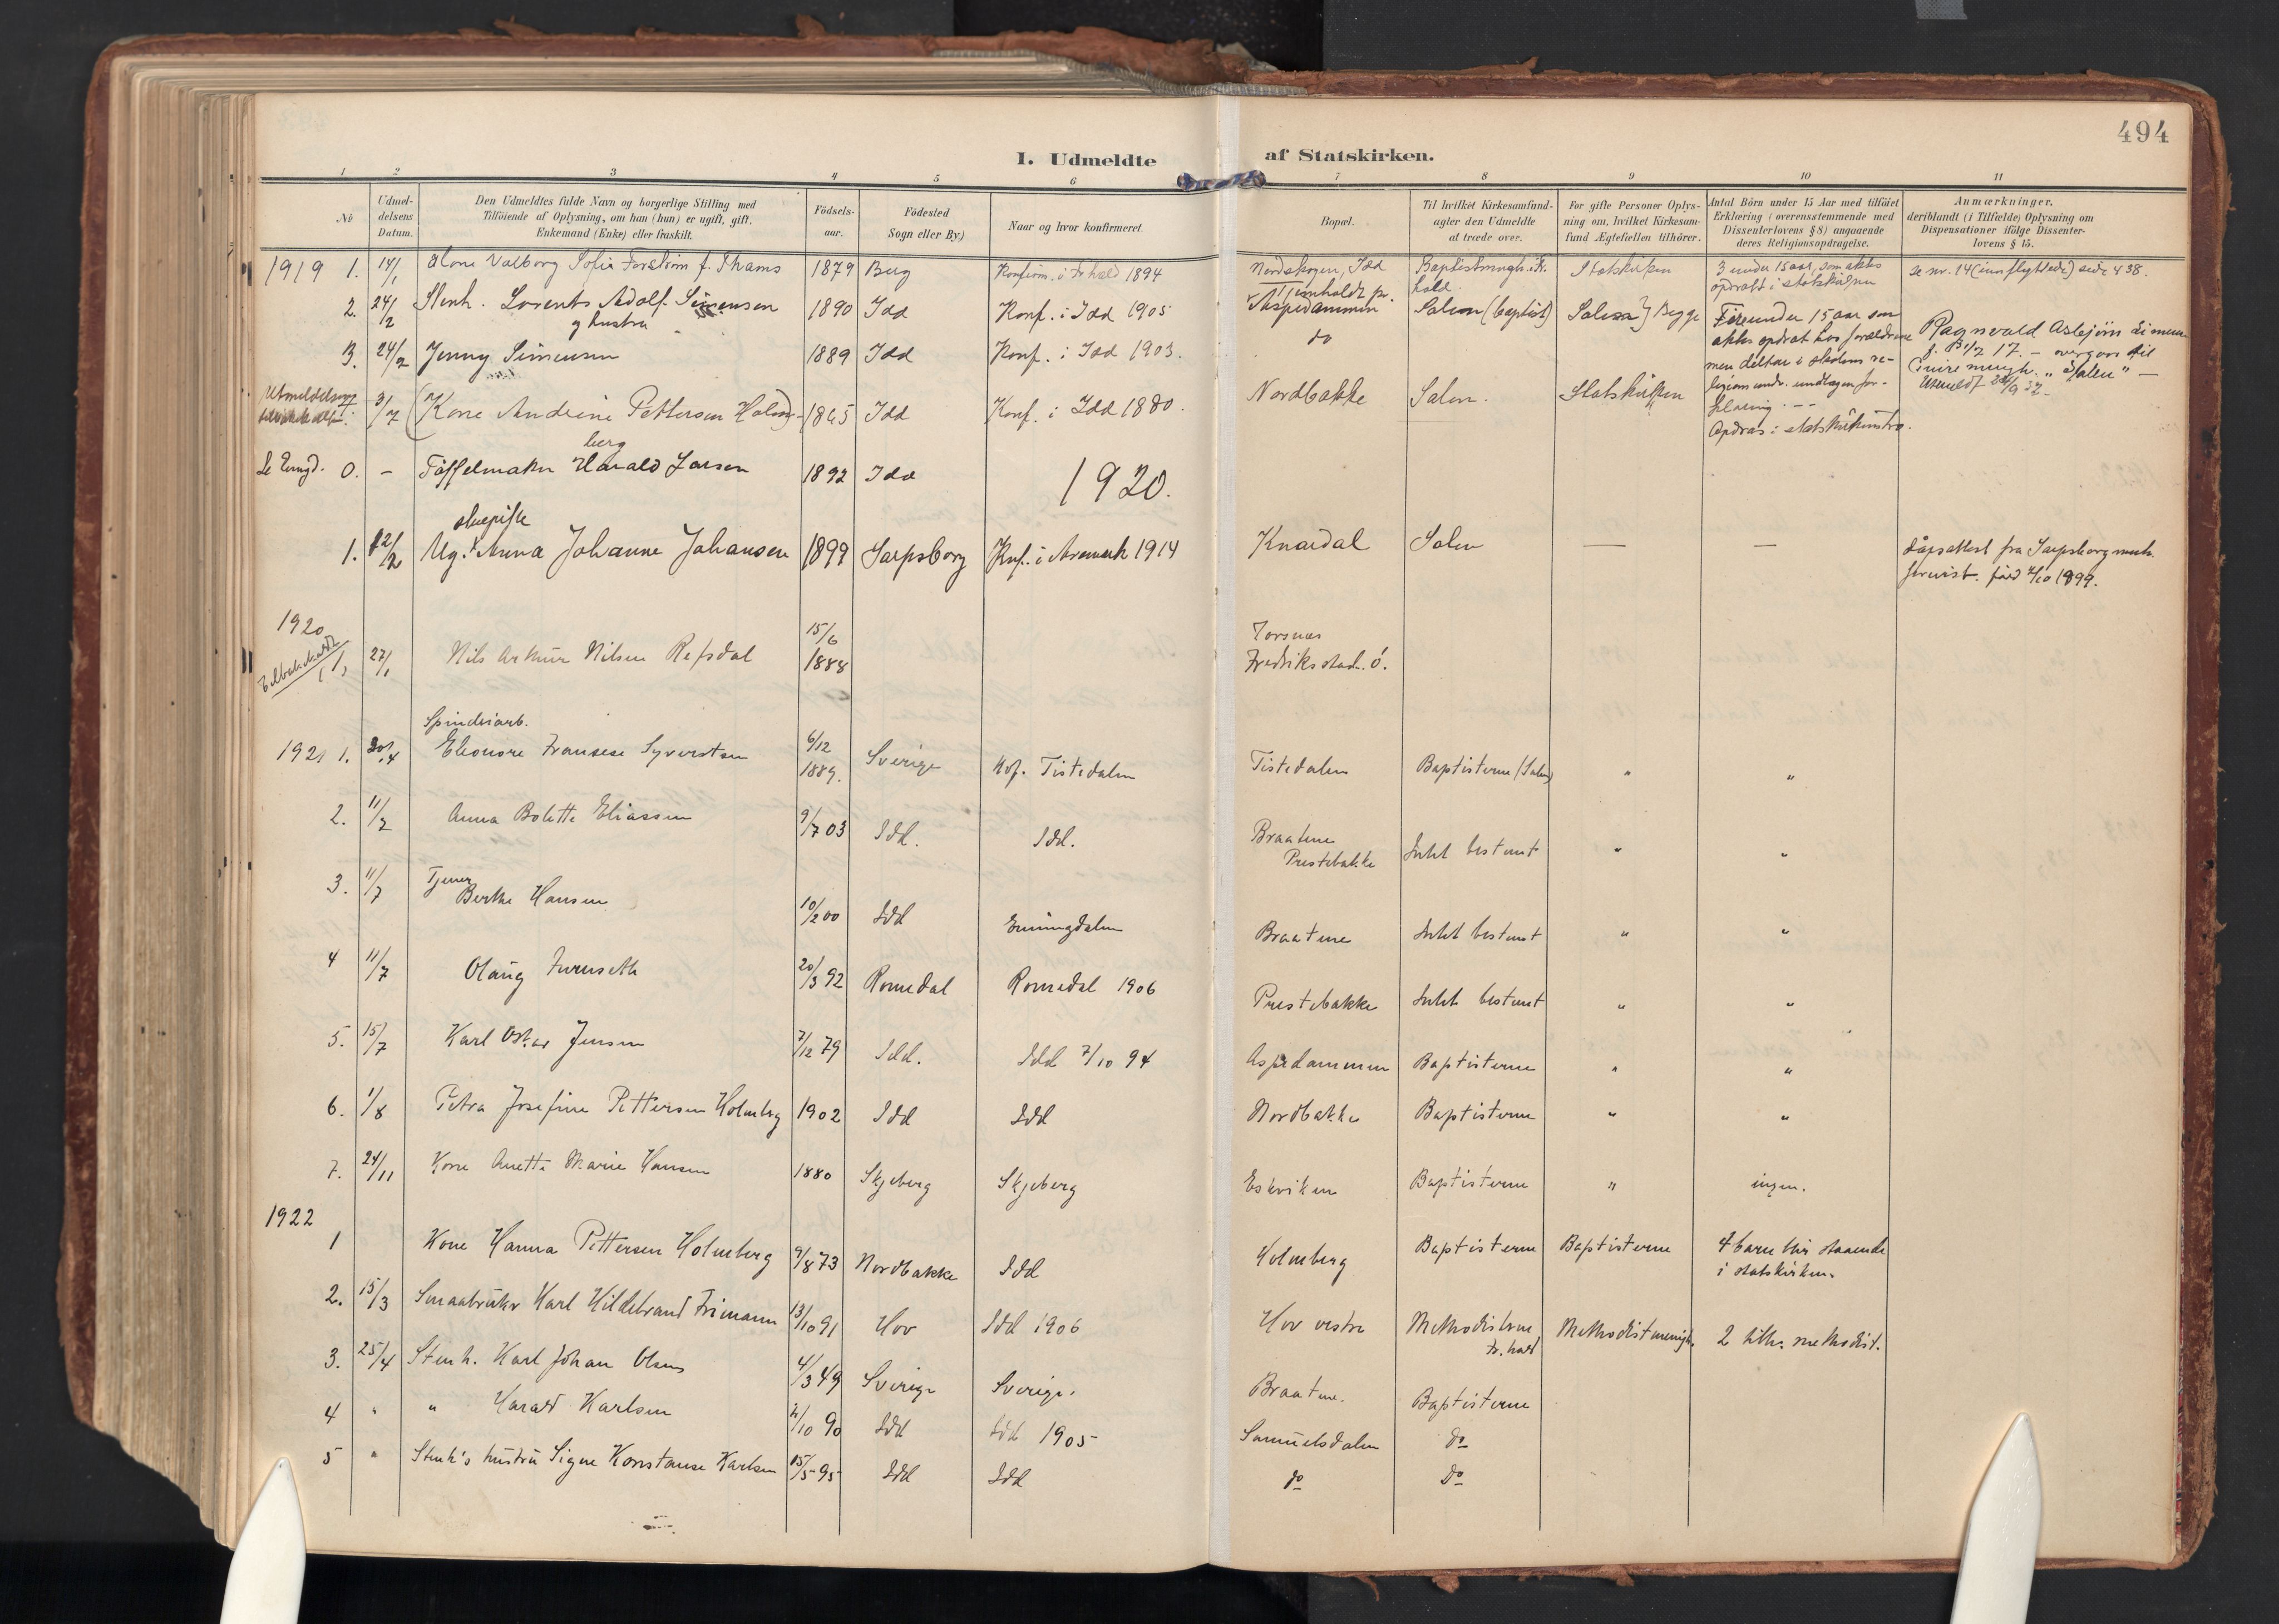 494
I. Udmeldte af Statskirken.
1 2 3 4 5 6 7 8 9 10 11
No
Udmel-
delsens
Datum.
Den Udmeldtes fulde Navn og borgerlige Stilling med
Tilföiende af Oplysning, om han (hun) er ugift, gift,
Enkemand (Enke) eller fraskilt.
Födsels-
aar.
Födested
Sogn eller By.)
Naar og hvor konfirmeret.
Bopæl.
Til hvilket Kirkesamfund-
agter den Udmeldte
at træde over.
For gifte Personer Oplys-
ning om, hvilket Kirkesam-
fund Ægtefællen tilhörer.
Antal Börn under 15 Aar med tilföiet
Erklæring (overensstemmende med
Dissenterlovens § 8) angaaende
deres Religionsopdragelse.
Anmærkninger.
deriblandt (i Tilfælde) Oplysning om
Dispensationer ifölge Dissenter-
lovens § 15.
1919 1. 14/1 Valborg Sofie Forström f. Thams 1879 Berg Konfirm. i Fr.hald 1894 Nordskogen, Idd Baptistmenigh. i Fr.hald Statskirken 3 under 15 aar, som aktes opdratt i statskirken se nr. 14 (innflyttede) side 438.
2. 24/2 Stenh. Lorents Adolf Simensen og hustru 1890 Idd Konf. i Idd 1905 Aspedammen Salem (baptist) Salem } Begge Fire under 15 aar som aktes opdrat hos forældrene men deltar i skolens re-
3. 24/2 Jenny Simensen 1889 Idd Konf. i Idd 1903. do Ragnvald Asbjörn Simensen
3/7 (Kone Andrine Pettersen Holm-berg) 1865 Idd Konf. i Idd 1880. Nordbakke Salem. Statskirken
Opdras i statskirkens tro.
0. - Töffelmaker Harald Larsen 1892 Idd
1920.
1. 12/2 Ug. Anna Johanne Johansen 1899 Sarpsborg Knf. i Aremark 1914 Knardal Salem — — Dåpsattest fra Sarpsborg
1920
1, 27/1 Nils Artur Nilsen Refsdal 15/6 1888 Torsnes Fredriksstad. ö.
Spinderiarb.
1921 1. 20/4 Eleonore Fransese Syvertsen 6/12 1889. Sverige Kof. Tistedalen Tistedalen Baptisterne (Salem) " "
2. 11/7 Anna Bolette Eliassen 9/7 03 Idd. Idd. Braatene Prestebakke Intet bestemt " "
3. 11/7 Tjener Berthe Hansen 10/2 00 Idd Enningdalen Braatene Intet bestemt " "
4 11/7 Olaug Furuseth 20/3 92 Romedal Romedal 1906 Prestebakke Intet bestemt " "
5. 15/7 Karl Oskar Jensen 7/12 79 Idd. Idd 7/10 94 Aspedammen Baptisterne " "
6. 1/8 Petra Josefine Pettersen Holmberg 1902 Idd Idd Nordbakke Baptisterne " "
7. 24/11 Kone Anette Marie Hansen 1880 Skjeberg Skjeberg Eskviken Baptisterne " ingen.
1922
1 Kone Hanna Pettersen Holmberg 9/8 73 Nordbakke Idd Holmberg Baptisterne Baptisterne 4 barn blir staaende i statskirken.
2. 15/3 Smaabruker Karl Hildebrand Frimann 13/10 91 Hov Idd 1906 Hov vestre Methodisterne Fr.hald Methodistmenigh. 2 tilh. methodist.
3. 25/4 Stenh. Karl Johan Olsen 4/3 49 Sverige Sverige. Braatene. Baptisterne
4 " " Harald Karlsen 2/10 90 Idd Idd 1905 Samuelsdalen do
5 " Stenh's hustru Signe Konstanse Karlsen 15/5 95 Idd Idd do do